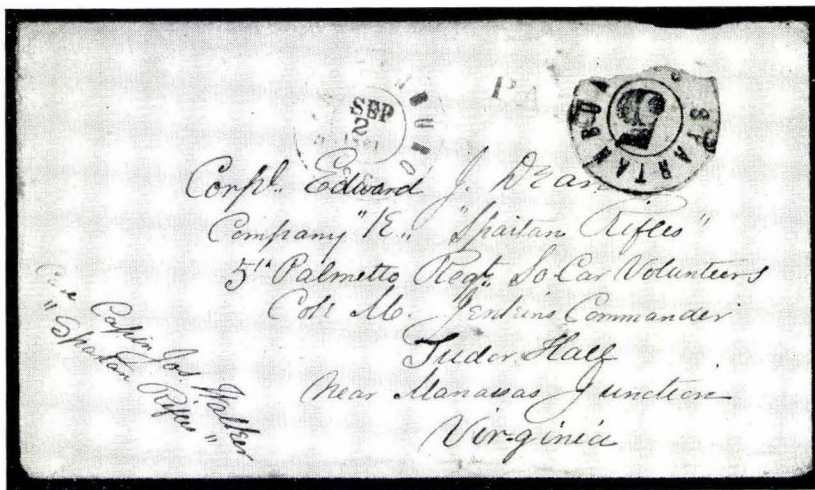 SEP
2
PA
SPARTANBU
5
Corpl. Edward J. Dean
Company "K" "Spartan Rifles"
5th Palmetto Regt. So Car Volunteers
Col: M. Jenkins Commander
Tudor Hall
near Manassas Junction
Virginia
Care Captn Jos Walker
"Spartan Rifles"